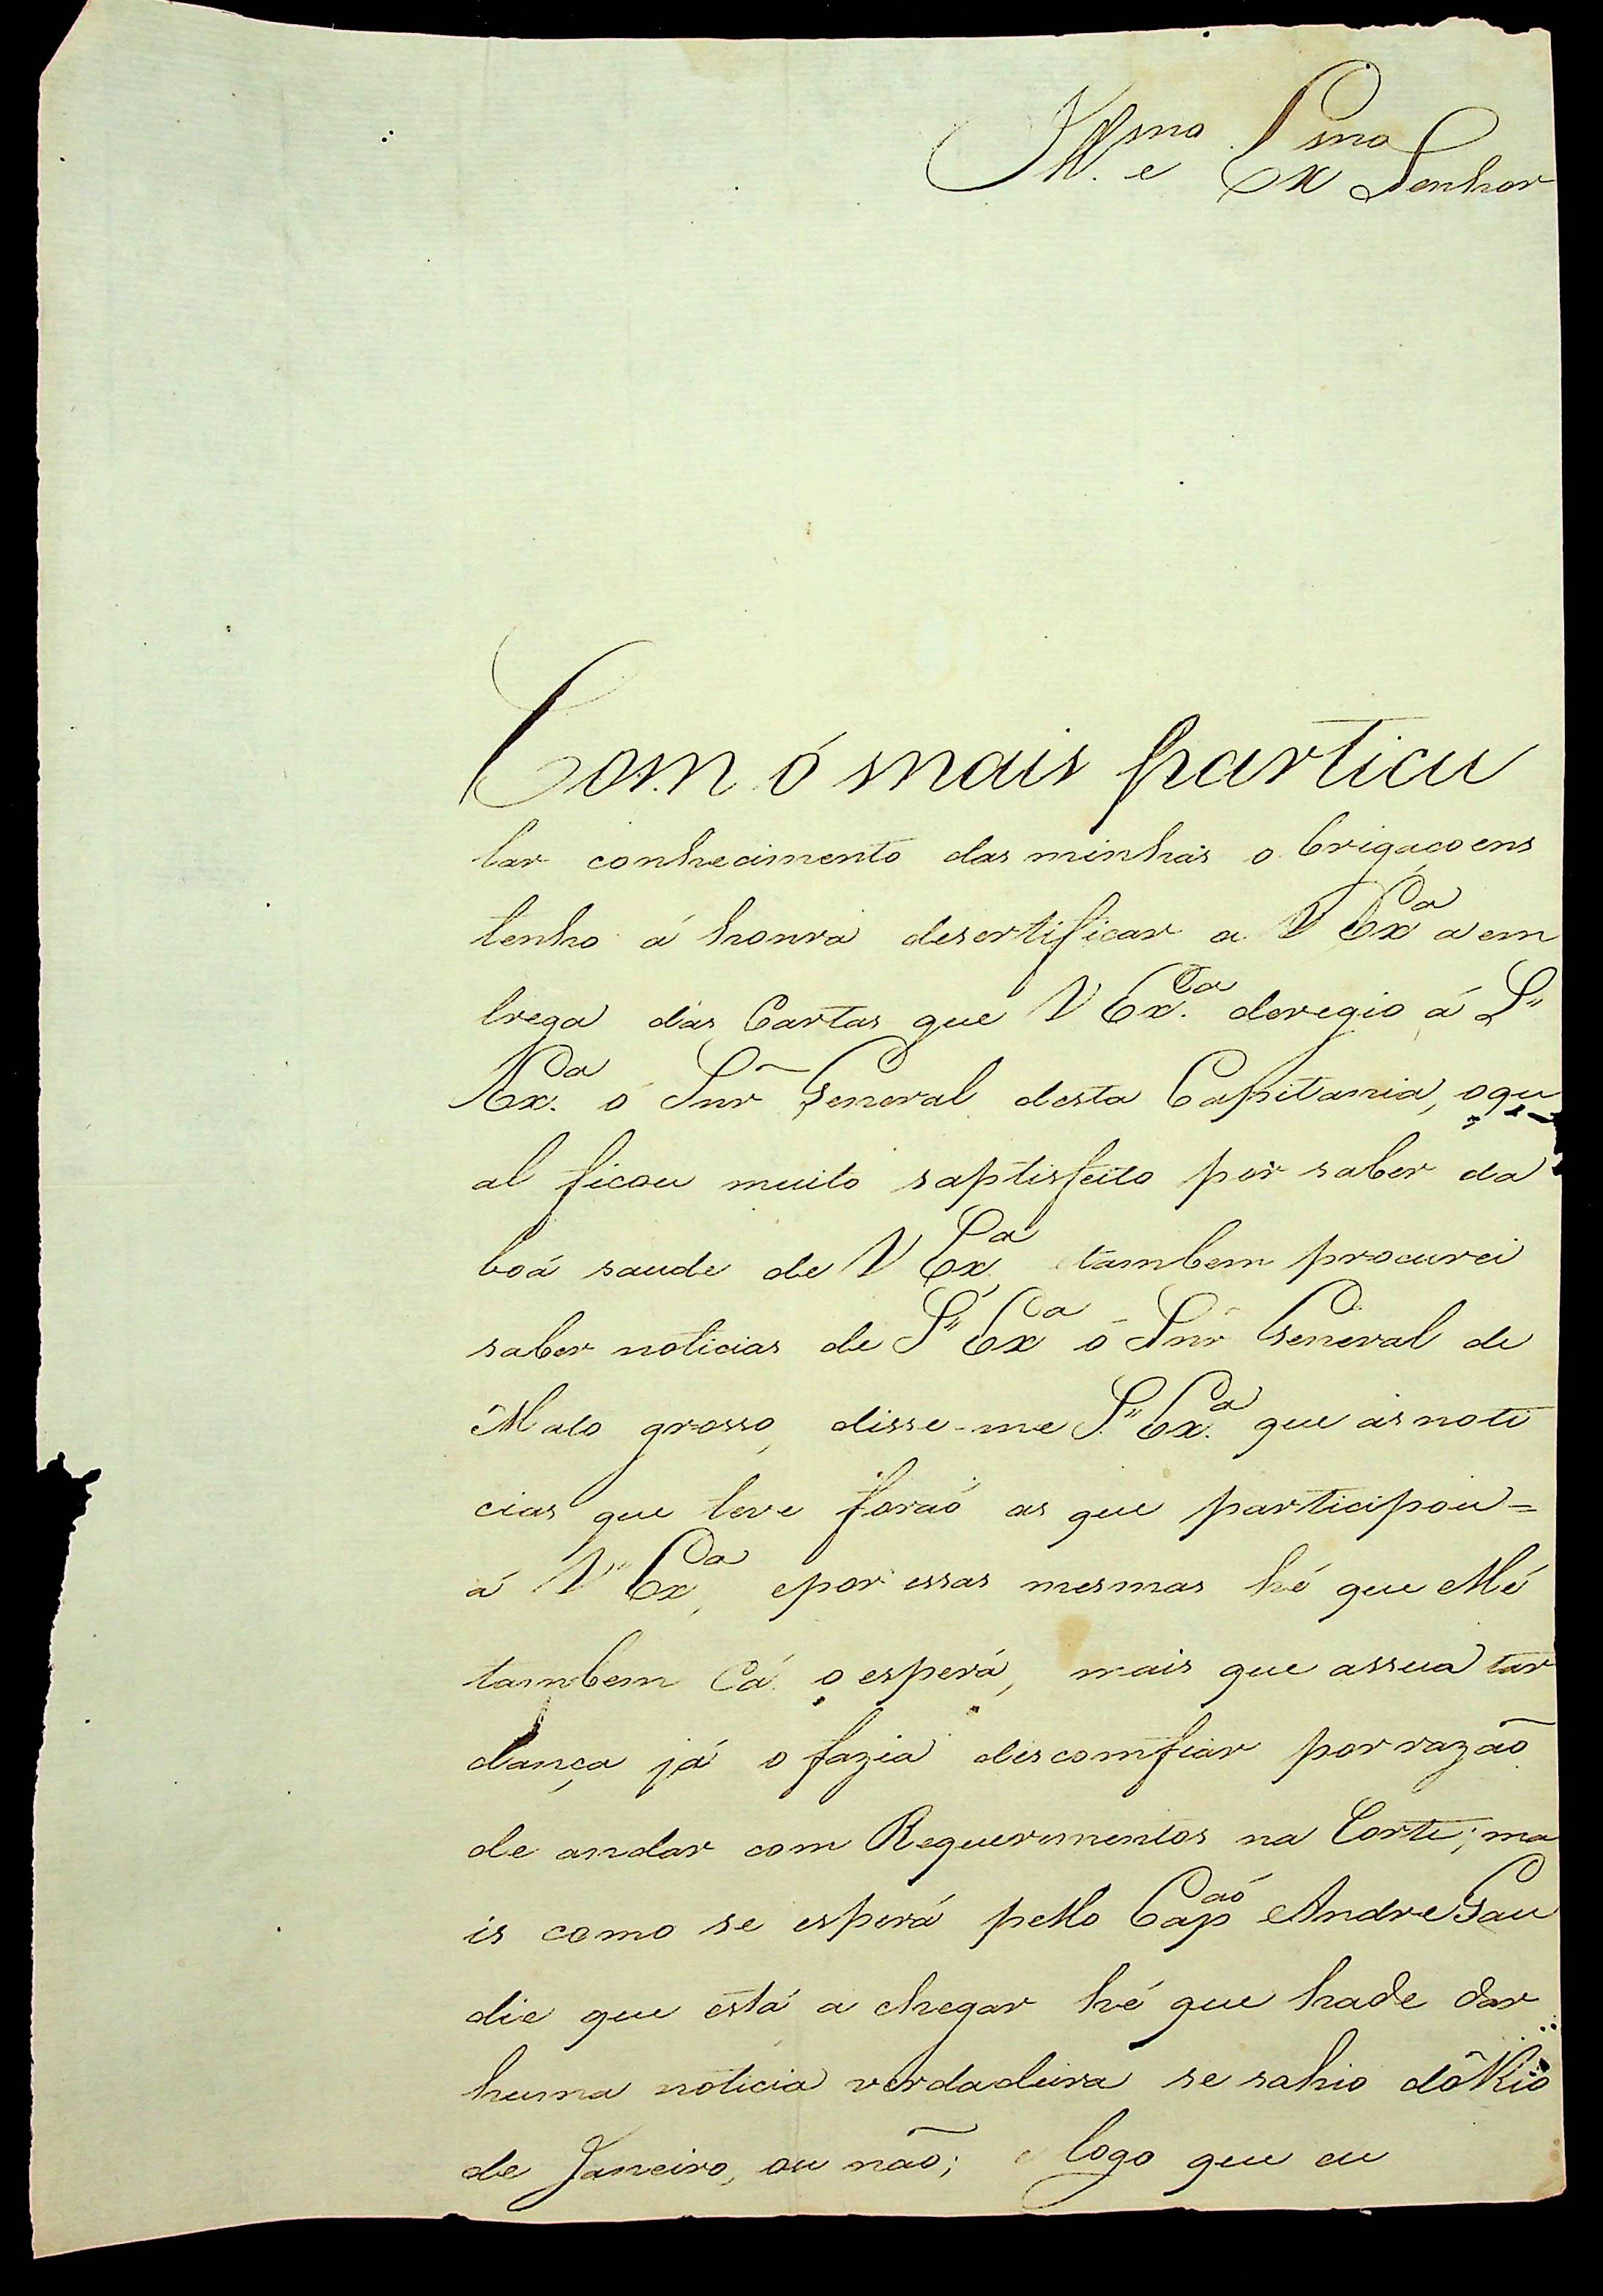 Ill.mo e Exmo Senhor
Com ó mais particu
lar conhecimento das minhas obrigaçoens
tenho á honra desertificar a V Exca a em
trega das Cartas que V Ex.ca deregio á S.a
Ex.ca o Snr General desta Capitania, oqu
al ficou muito saptisfeito por saber da
boá saude de V Exca tambem procurei
saber noticias de S.a Exca o Snr General de
Mato grosso, disse-me S.a Ex.ca que as noti
cias que teve foraó as que participou=
á V.a Exca, epor essas mesmas hé que elle
tambem Cá o esperá, mais que assua tar
dança já o fazia descomfiar por razão
de andar com Requerimentos na Corte; ma
is como se esperá pello Capaó Andre Gau
die que está a chegar hé que hade dar
huma noticia verdadeira se sahio dô Rio
de Janeiro, ou não; e logo que eu